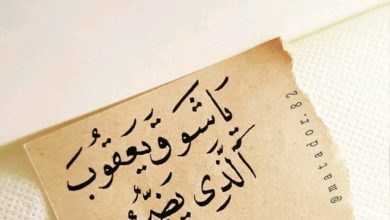 يَا شَوقَ يَعقُوبَ
الَّذِي
@matador.82